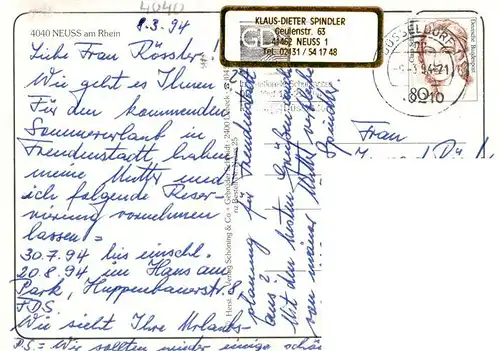 4040
4040 NEUSS am Rhein
8.3.94
KLAUS-DIETER SPINDLER
Geulenstr. 63
41462 NEUSS 1
Tel. 02131 / 54 17 48
Liebe Frau Rössler!
Wie geht es Ihnen?
Für den kommenden
Sommerurlaub in
Freudenstadt, habe
meine Mutter und
ich folgende Reser-
vierung vornehmen
lassen:
30.7.94 bis einschl.
20.8.94 im Haus am
Park, Huppenbauerstr. 8
FDS.
Wie sieht Ihre Urlaubs-
planung für Freudenstadt
aus?
Mit den besten Grüßen auch
von meiner Mutter
Spindler
PS = Wir sollten wieder einige schö
Verlag Schöning & Co + Gebrüder Schmidt
DÜSSELDORF
94-21
Deutsche Bundespost
Frau